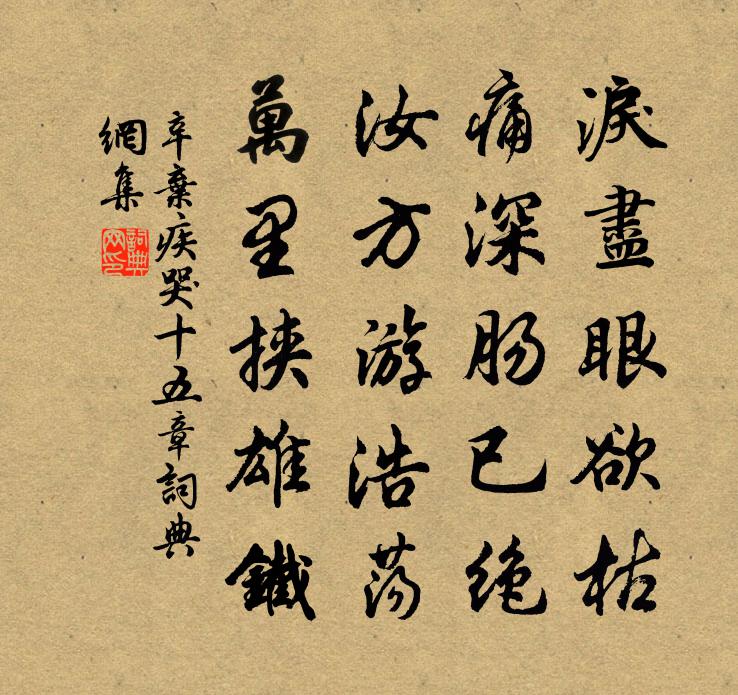 淚盡眼欲枯
痛深腸已絕
汝方游浩蕩
萬里挾雄鐵
辛棄疾哭十五章詞典
網集
詞典
网印